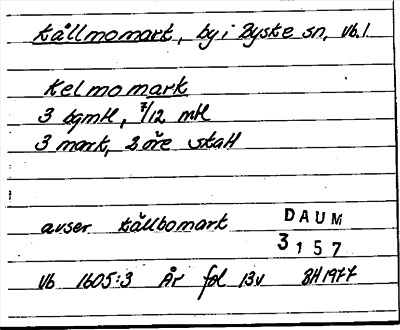 Kållmomark, by i Byske sn, Vb.l.
Kelmomark
3 bgmtl, 7/12 mtl
3 mark, 2 öre skatt
avser Kållbomark
DAUM
3157
Vb 1605:3 År fol 13v BH 1977